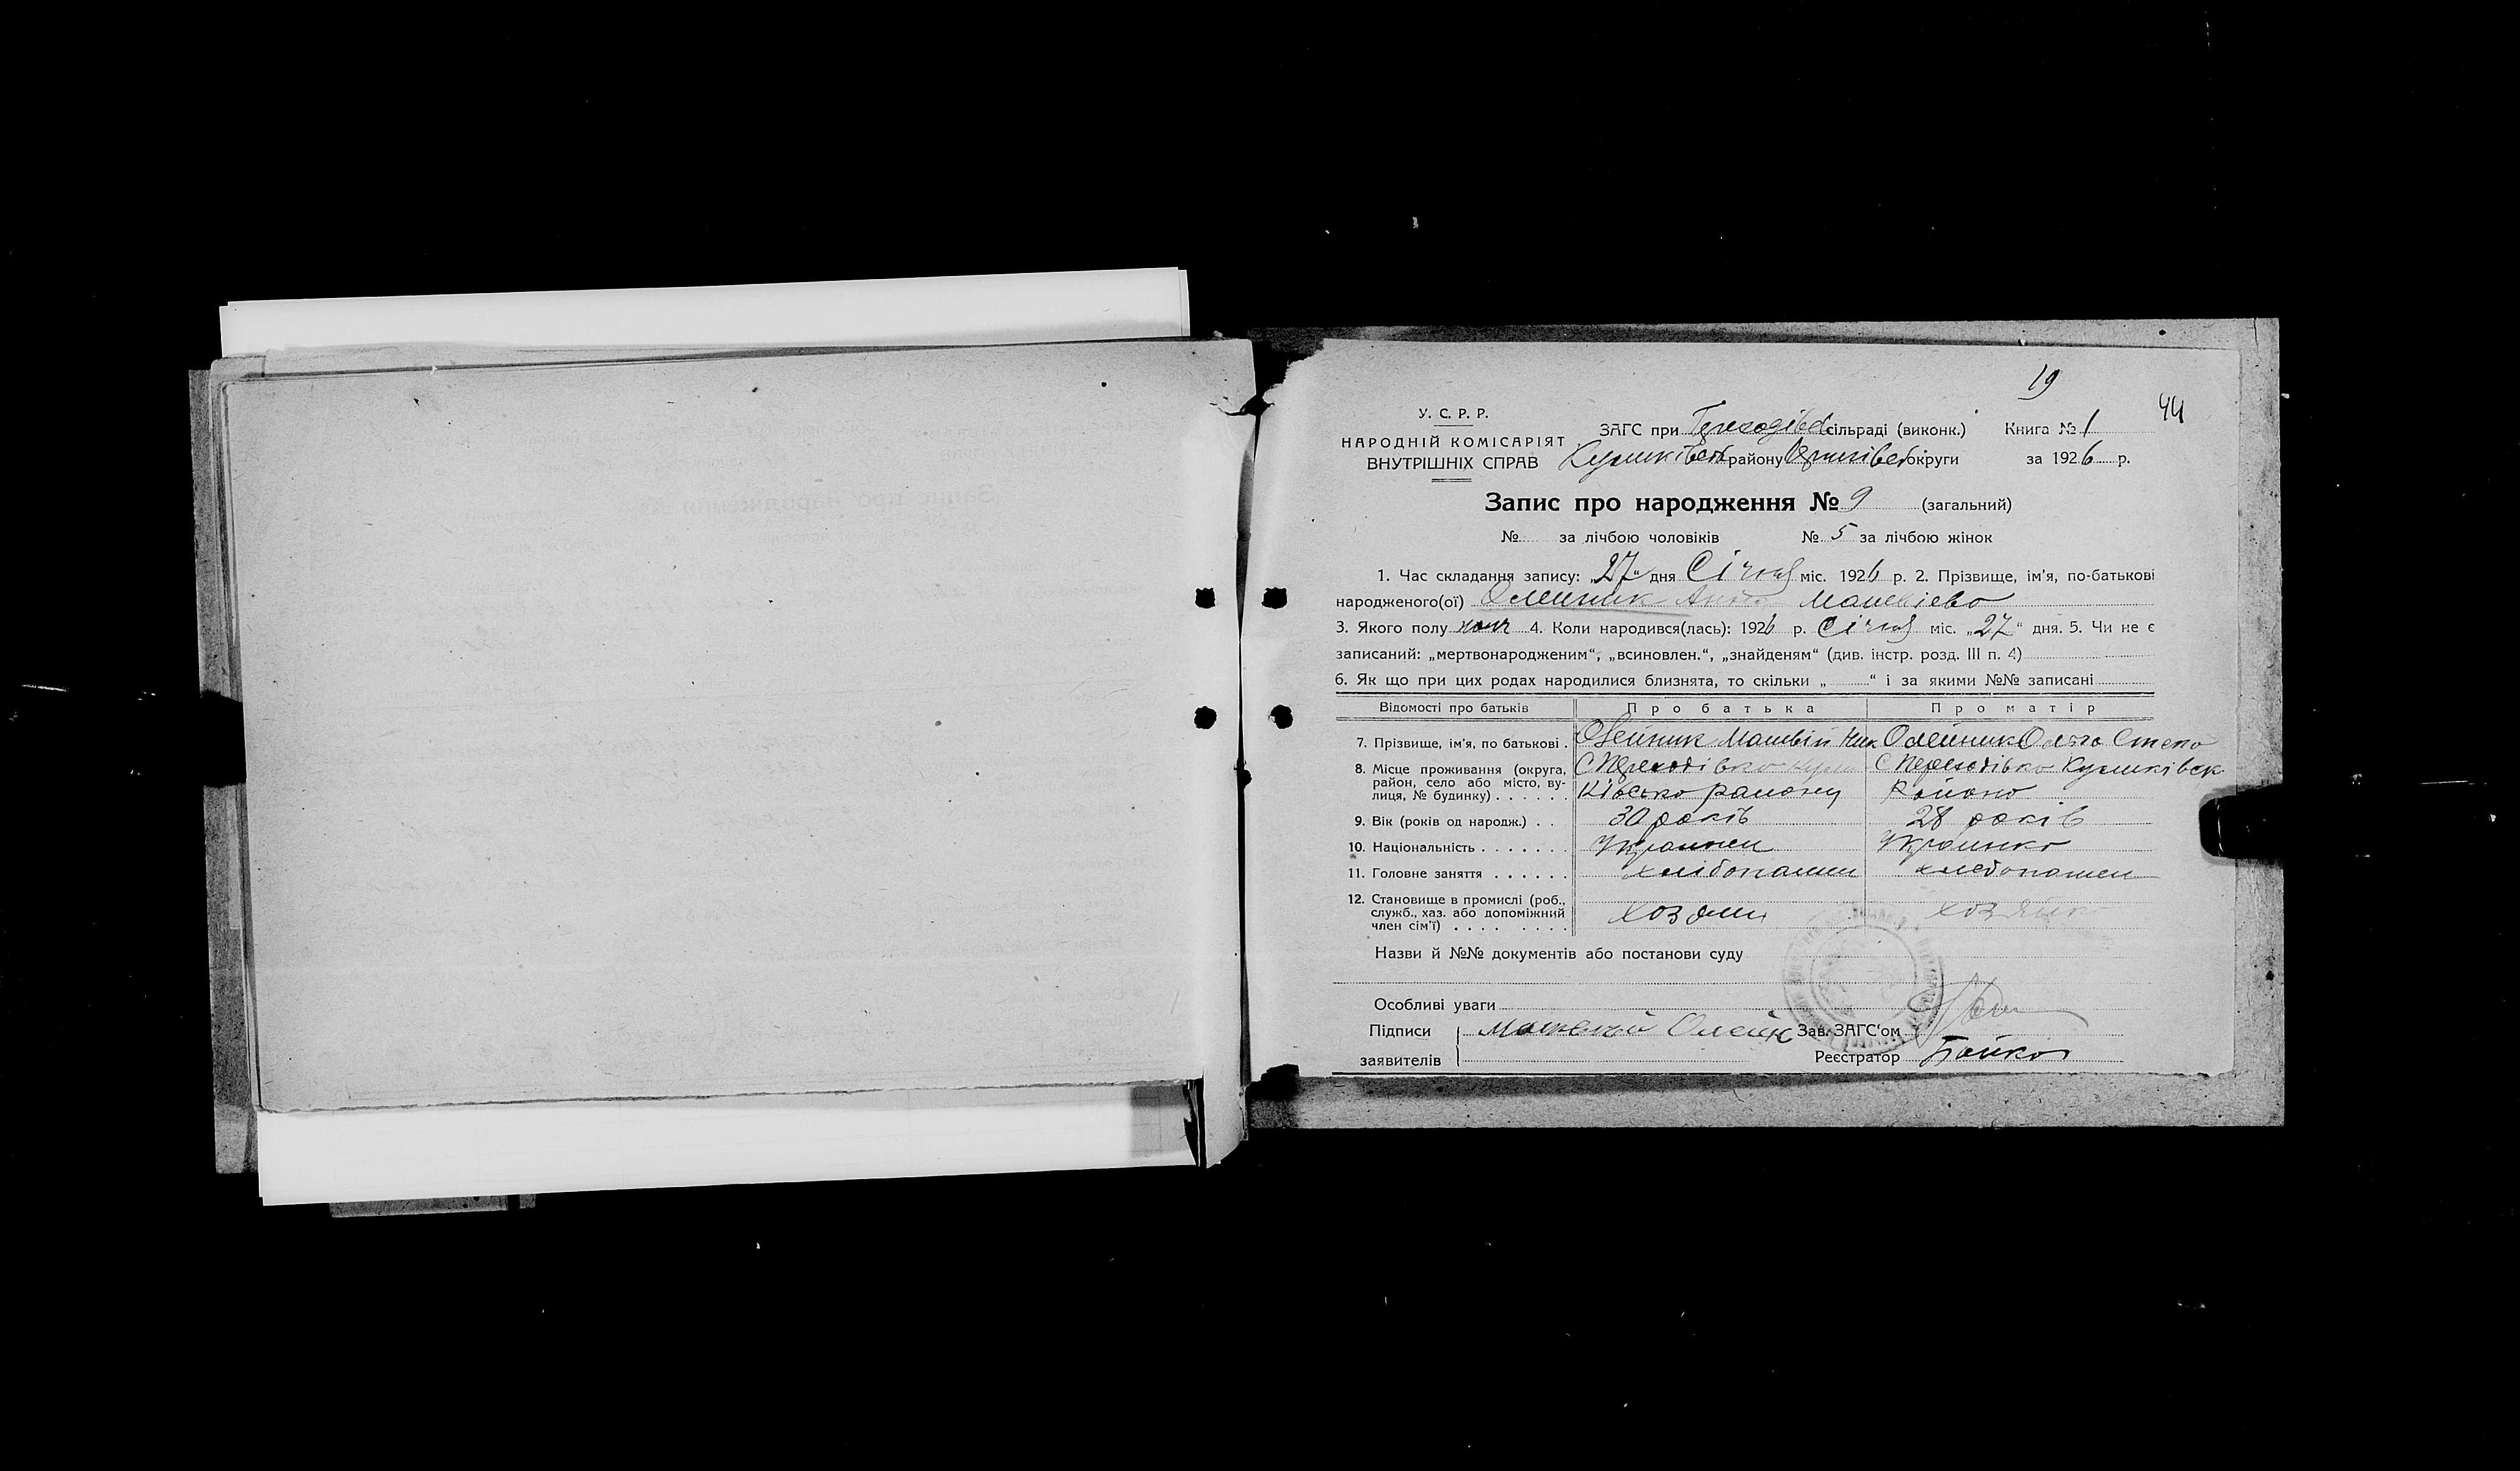 19
44
У. С. Р. Р.
НАРОДНІЙ КОМІСАРІЯТ
ВНУТРІШНІХ СПРАВ
ЗАГС при сільраді (виконк.) Книга № 1
району округи за 1926 р.
Запис про народження № 9 (загальний)
№ за лічбою чоловіків № 5 за лічбою жінок
1. Час складання запису: „27“ дня Січня міс. 1926 р. 2. Прізвище, ім’я, по-батькові
народженого(ої) Олейник Матвієва
3. Якого полу жіноч 4. Коли народився(лась): 1926 р. Січня міс. „27“ дня. 5. Чи не є
записаний: „мертвонародженим“, „всиновлен.“, „знайденям“ (див. інстр. розд. III п. 4)
6. Як що при цих родах народилися близнята, то скільки „ “ і за якими №№ записані
Відомості про батьків Про батька Про матір
7. Прізвище, ім’я, по батькові . Олейник Матвій Ник Олейник Ольга Степа
8. Місце проживання (округа, С Переходівка С Переходівка Куликівск
район, село або місто, ву-
лиця, № будинку) . . . . . . ківсько району Району
9. Вік (років од народж.) . . 30 років 28 років
10. Національність . . . . . . . Украинец Украинка
11. Головне заняття . . . . . . хлібопашец хлебопашец
12. Становище в промислі (роб.,
служб., хаз. або допоміжний хозяин хозяйк
член сім’ї) . . . . . . . .
Назви й №№ документів або постанови суду
Особливі уваги
Підписи Зав. ЗАГС‘ом
заявителів Реєстратор Бойко